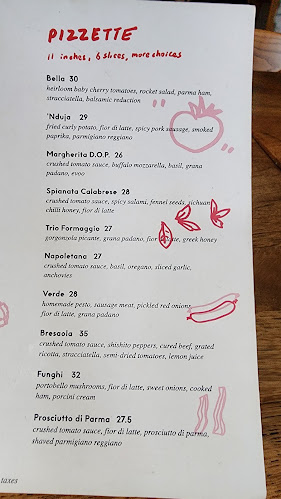 PIZZETTE
11 inches, 6 slices, more choices
Bella 30
heirloom baby cherry tomatoes, rocket salad, parma ham,
stracciatella, balsamic reduction
'Nduja 29
fried curly potato, fior di latte, spicy pork sausage, smoked
paprika, parmigiano reggiano
Margherita D.O.P. 26
crushed tomato sauce, buffalo mozzarella, basil, grana
padano, evoo
Spianata Calabrese 28
crushed tomato sauce, spicy salami, fennel seeds, sichuan
chilli honey, fior di latte
Trio Formaggio 27
gorgonzola picante, grana padano, fior di latte, greek honey
Napoletana 27
crushed tomato sauce, basil, oregano, sliced garlic,
anchovies
Verde 28
homemade pesto, sausage meat, pickled red onions,
fior di latte, grana padano
Bresaola 35
crushed tomato sauce, shishito peppers, cured beef, grated
ricotta, stracciatella, semi-dried tomatoes, lemon juice
Funghi 32
portobello mushrooms, fior di latte, sweet onions, cooked
ham, porcini cream
Prosciutto di Parma 27.5
crushed tomato sauce, fior di latte, prosciutto di parma,
shaved parmigiano reggiano
taxes